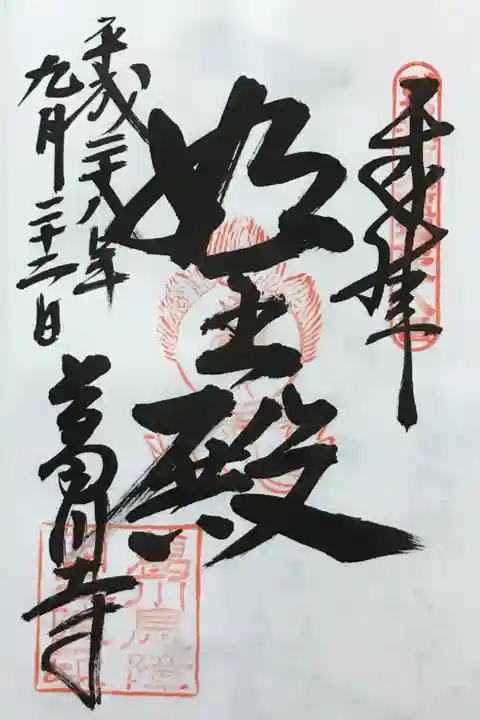 奉拝
明王殿
平成二十八年
九月二十二日
葛川寺